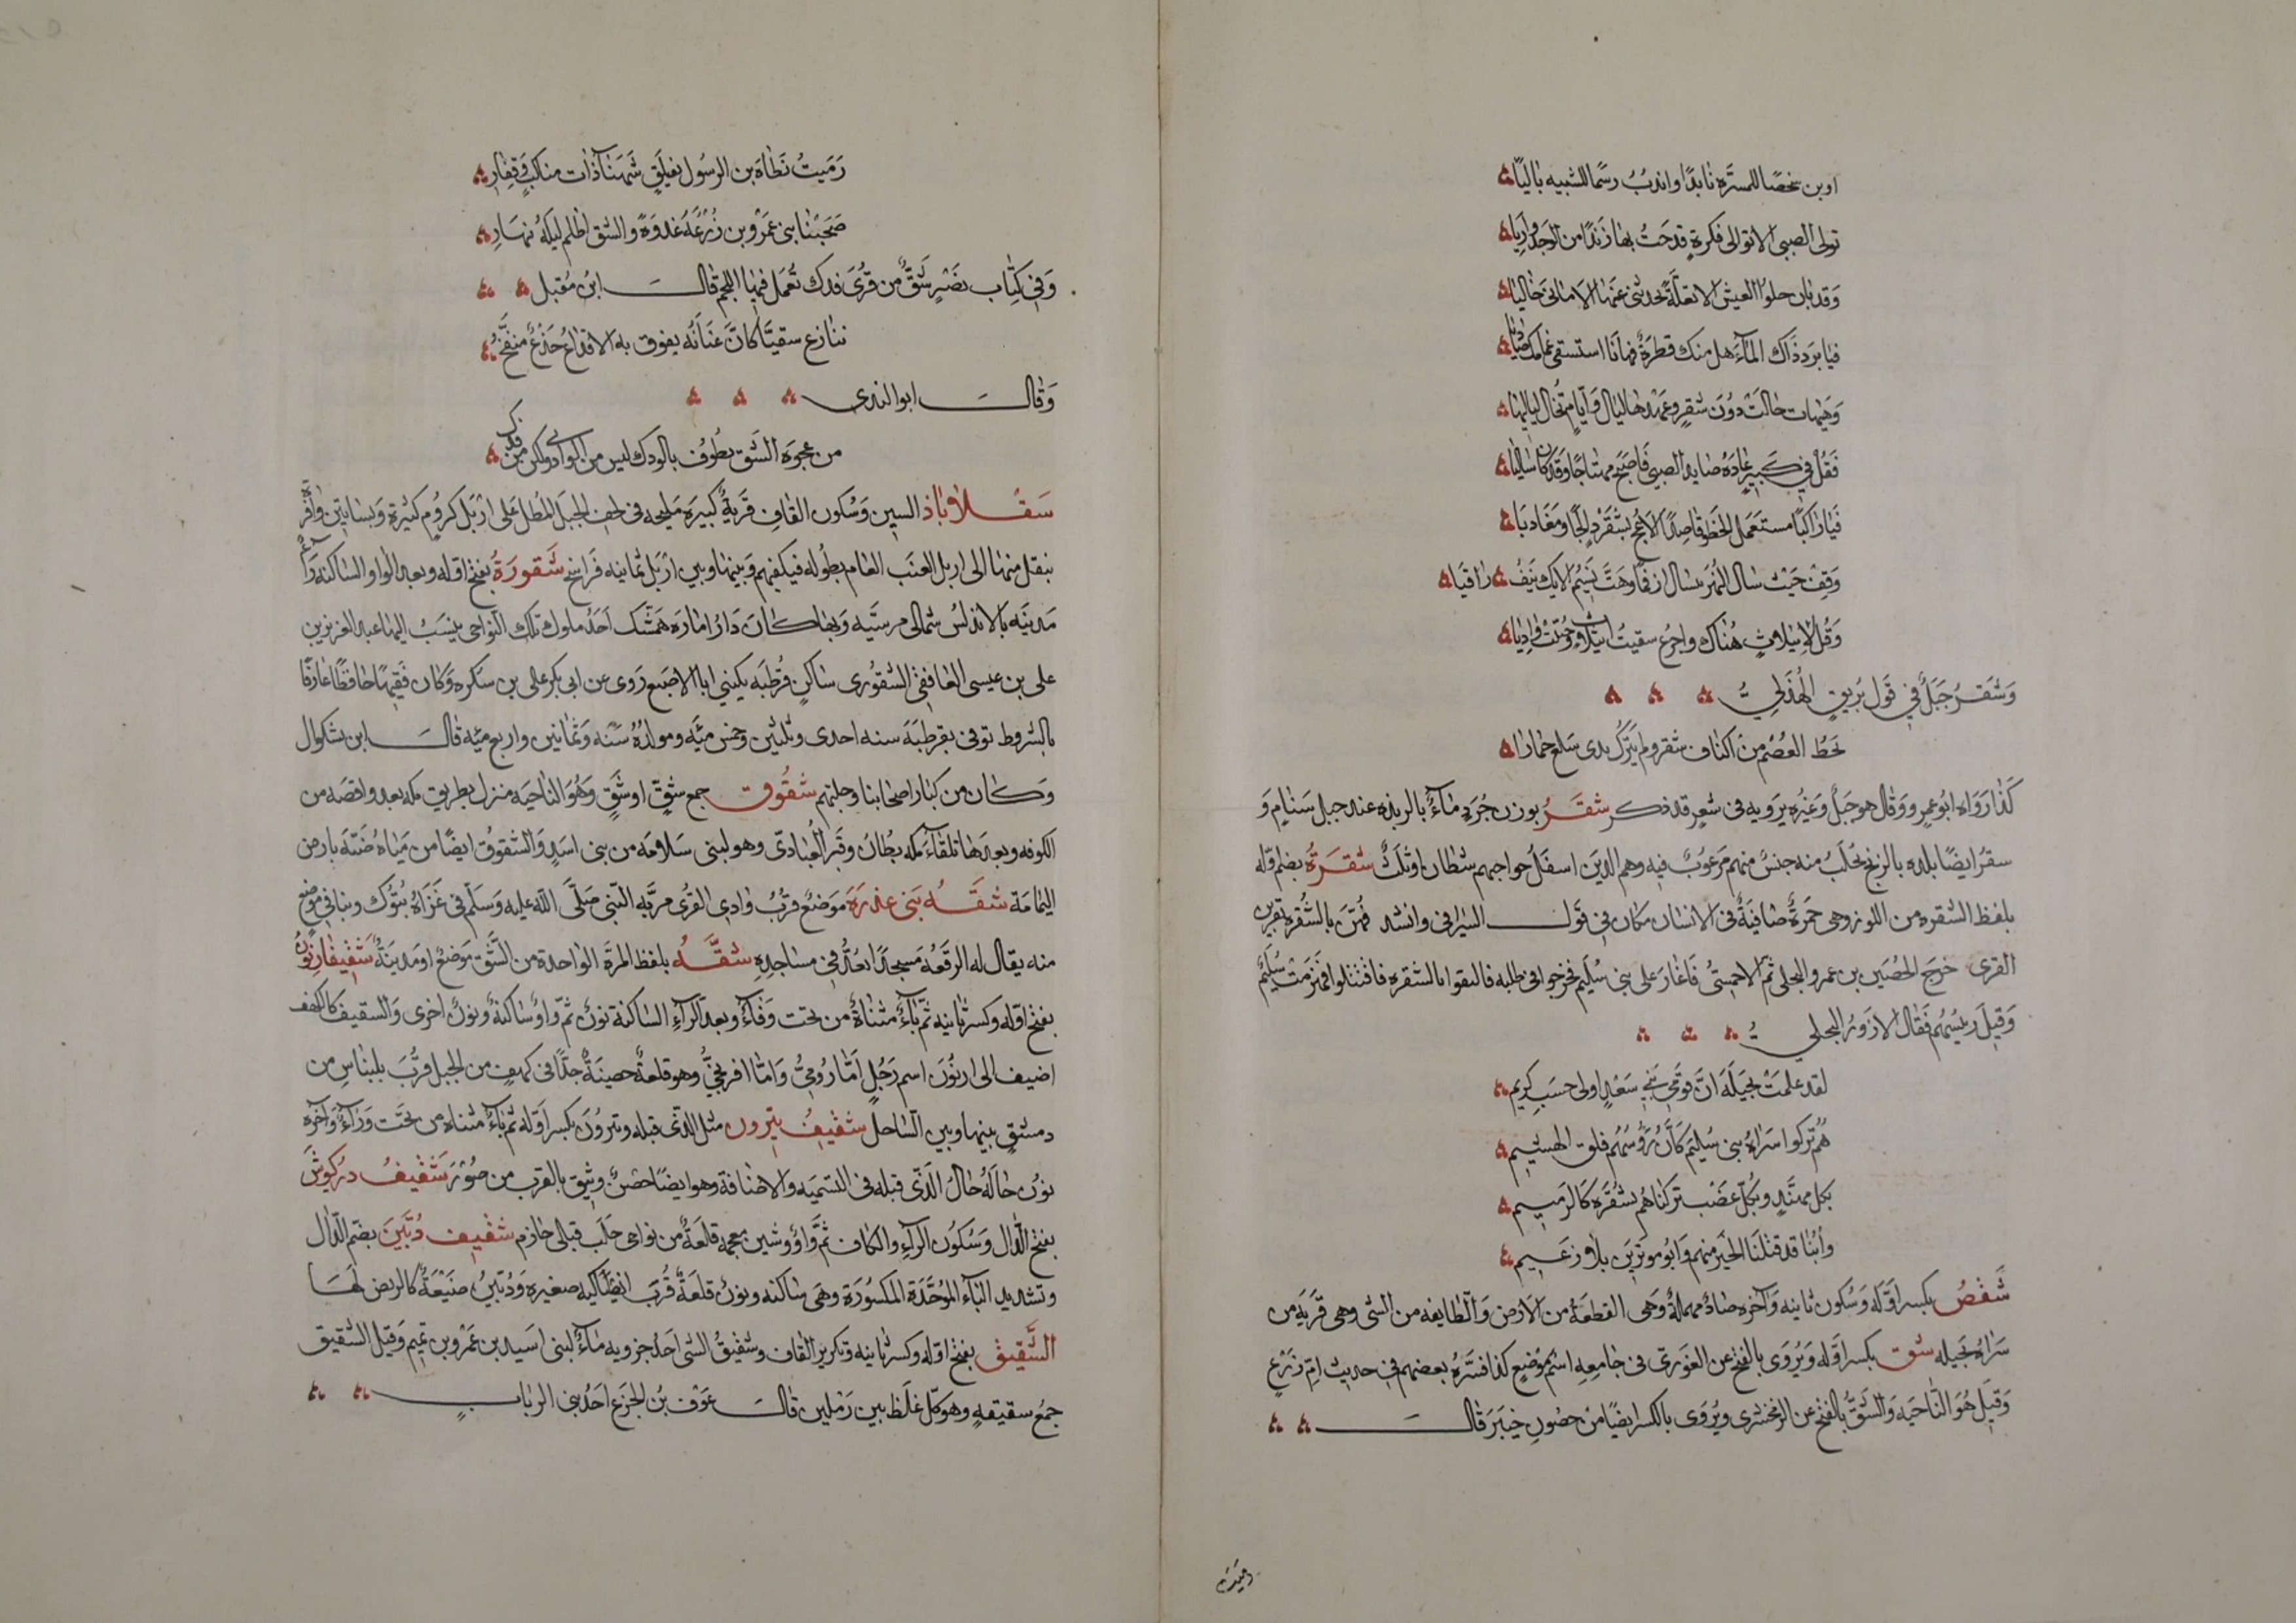 اوبن شخصًا للمسرَّه نابذا واندبُ رسمًا للشبيبه باليًا
تولى الصبى الا توالى فكرةٍ قدحَتُ بها زَندًا من الوجد وارِيا
وَقد بان حلوُ العيش الا تعلَّةً تحدثنى عَنها الاَمانى خَاليا
فيَا بردَ ذَاك المآءَ هل منك قطرةً فهانَا استسقى غمامك صَاديا
وَهَيهات حالتْ دوُنَ شقرٍ وعهدها ليال وَايامٌ تخال لياليها
فَقُل فى كَبيرٍ عَادَهُ صايد الصبى فَاصبَح مهتاجًا وَقد كان سَاليا
فَيا رَاكبًا مستَعمل الخطو قاصِدًا الاَ عُج بشقرٍ رايحًا ومغَاديا
وَقِفْ حَيْث سَال النهر ينسال ارقمًا وهَبَّ نَسيمُ الايك ينفُث راقيَا
وَقُل لاثيلاتٍ هُناك واجرعٍ سقيتُ اثيلاَتٍ وحُيّيْتَ وَادِيا
وَشَقرُ جَبَلٌ فى قَول بُريقٍ الهُذَلِىُّ
يَحطُ العُصْم من اكناف شقرو لم يَترُك بذى سَلع حمَارا
كَذا رَوَاه ابُو عمرٍو وَقال هو جَبلٌ وَغيرُه يرويه فى شعرٍ قد ذكر شقَرُ بوزن جُرَذٍ مَآءٌ بالربذه عند جبل سَنامٍ وَ
سقرُ ايضًا بلده بالزنج يُجلَبُ منه جنسٌ منهم مَرغوُبٌ فيه وهم الذين اسفَلُ حواجبهم شطان او ثلثٌ شقرَةُ بضم اوّله
بلفظ الشقره من اللون وهى حمرَةٌ صَافيَةٌ فى الانسان مكان فى قَول السّيرافى وانشد فهُنَّ بالشُقرَه يَقرِين
القرى خرجَ الحُصَين بن عمرو البجلى ثمّ الاحمسِىُّ فَاغارَ عَلى بنى سُليَم فخرجوا فى طلبه فالتقوا بالشقره فاقتتلوا فهُزمَتْ سُلَيمٌ
وَقيلَ رئيسُهُم فَقال الازوَرُ البجلىُّ
لقد علمَتْ بجيلَة انَّ قوَمى بَنى سَعْدٍ اولى حَسَبٍ كريم
هُمُ تَركُوا سَراةَ بنى سُليَم كَانَّ رُؤسَهُم فلق الهشيم
بكل مهنَّدٍ وبكلّ عَضْب تركناهُم بشُقرة كَالرميم
وأُبنا قد قتلنَا الخَير منهم وَابُو موترينَ بلا زعَيم
شَقْصُ بكسر اوّله وَسُكون ثانيه وَآخره صَادٌ مهملةٌ وَهى القطعَهُ من الاَرض وَالطايفه من الشى وهى قَريَه من
سَراه بجيله شق بكسر اوّله وَيُروى بالفتح عن الغوَرىّ فى جامِعِه اسمُ مَوضع كذا فسَّرهُ بعضهم فى حديث امّ زَرْعٍ
وَقيَل هُوَ النّاحيَه وَالشقُّ بالفتح عن الزمخشرى ويُروَى بالكسر ايضًا من حصُونِ خيبَرَ قال
رميت
رَمَيتُ نَطاةَ من الرسُول بفيلَقٍ شَهبَناء ذات مناكبٍ وَفِقارٍ
صَبَحْنَا بنى عمرو بن زُرْعَةَ غدوَةً والشق اظلم ليلَهُ بنهَارِ
وَفى كتَاب نَصْرٍ شَقٌّ من قُرَى فدك تُعمَل فيها اللجمُ قال ابنُ مُقبل
ننازع سقيًّا كانَّ عَنَانَه يفوق به الاقداع جَذْعٌ منقَّحُ
وَقال ابو الندى
من عجوَة الشَق بطُوف بالودك ليس من الوادى ولكن من فدك
سَقْلاوَاباذ السين وَسُكون القافِ قَريَةٌ كبيَره مَليحه فى لحف الجبَل المُطل عَلى اربَل كرُومٍ كثيرة وَبسَاتين وَافره
ينقل منها الى اربل العنَب العَام بطُوله فيكفيهم وَبينها وبين اربَل ثمانيه فَراسخ شَقورَةُ بفتح اوّله وبعد الواو السّاكنه رَآءٌ
مَدينَه بالاندلسُ شمَالى مرسيَّه وَبهَا كانَ دَارُ امَارَه هَمشَك احَدُ ملوك تلك النّواحى ينسَبُ اليها عبد العزيز بن
على بن عيسى الغافقى الشقوُرى ساكن قُرطبَه يكنى ابا الاصبَع رَوى عن ابى بكر على بن سَكره وَكان فَقيهًا حَافظًا عَارفًا
بالشروط توفى بقرطبَة سنه احدى وَثلثين وَخمس مَيَّه ومولدُهُ سَنَه وَثمانين واربع ميّه قال ابن بشكوال
وَكان من كبَار اصحابنا وجلتهم شقُوق جمع شقّ او شَقٍّ وَهُو الناحيَه منزل بطريق مكه بعد واقصَه من
الكوفه وبعدَها تلقآءَ مكه بطُانُ وقَبر العُبَادىّ وهو لبنى سَلامَه من بنى اسَدٍ والشقوقُ ايضًا من ميَاه ضَبّه بارض
اليَمامَة شقَّه بَنى عذرَةَ مَوَضعٌ قربُ وَادى القرى مرّ به النّبى صَلّى الله عليه وَسَلّم فى غَزَاة تَبُوك وبنا فى موضع
منه يقال له الرقعَهُ مَسجدًا يعُدُّ فى مساجدِهِ شقَّهُ بلفظ المرة الواحدة من الشّق مَوضعٌ او مَدينَةٌ شَقيفارنون
بفتح اوّله وكسر ثانيه ثم يَآءٌ مثناةٌ من تحت وَفَآءٌ وبعد الرّآءِ السّاكنة نونٌ ثمّ وَاوٌ سَاكنةٌ ونوُنٌ اخرى وَالسقيف كالكهف
اضيف الى ارنُونَ اسم رَجُلٍ امّا رُومِىُّ وَامّا افرنجىُّ وهو قلعةٌ حصينَةٌ جدًّا فى كهفٍ من الجبل قُربَ بانياس من
دمشقٍ بينها وبين السَّاحل شقْيفُ تيرون مثل الذى قبله وتيرُونَ بكسر اوّله ثم يآءٌ مثناه من تحَت وَرَآءٌ وَآخره
نوُن حَالهُ حَالُ الّذى قبله فى التسميَه والاضَافة وهو ايضًا حصنٌ وثيق بالقرب من صُوْرَ شَقْيفُ دركوُشَ
بفتح الدّال وَسُكوُن الرّآءِ والكاف ثمَّ وَاوٌ وشين معجمه قلعَةٌ من نواحى حَلَب قبلى حَازم شقْيف دُبّينَ بضَم الدّال
وتشديد البآءِ الموُحَّدَة المكسُورَة وَهَى يَا ساكنه ونونٌ قلعَةٌ قُربَ انطاكيه صغيره وَدُبّينُ ضَيْعَةٌ كالربض لهَا
الشَّقيقُ بفتح اوّله وكسر ثانيه وتكرير القاف وشقيقُ الشى احَدُ جزويه مَآءٌ لبنى اسَيد بن عَمرو بن تميم وَقيل الشقيق
جمعُ سقيقهٍ وهو كلّ غلَظ بين رَمْلين قال عَوْف بنُ الجزع احَدُ بنى الربابِ